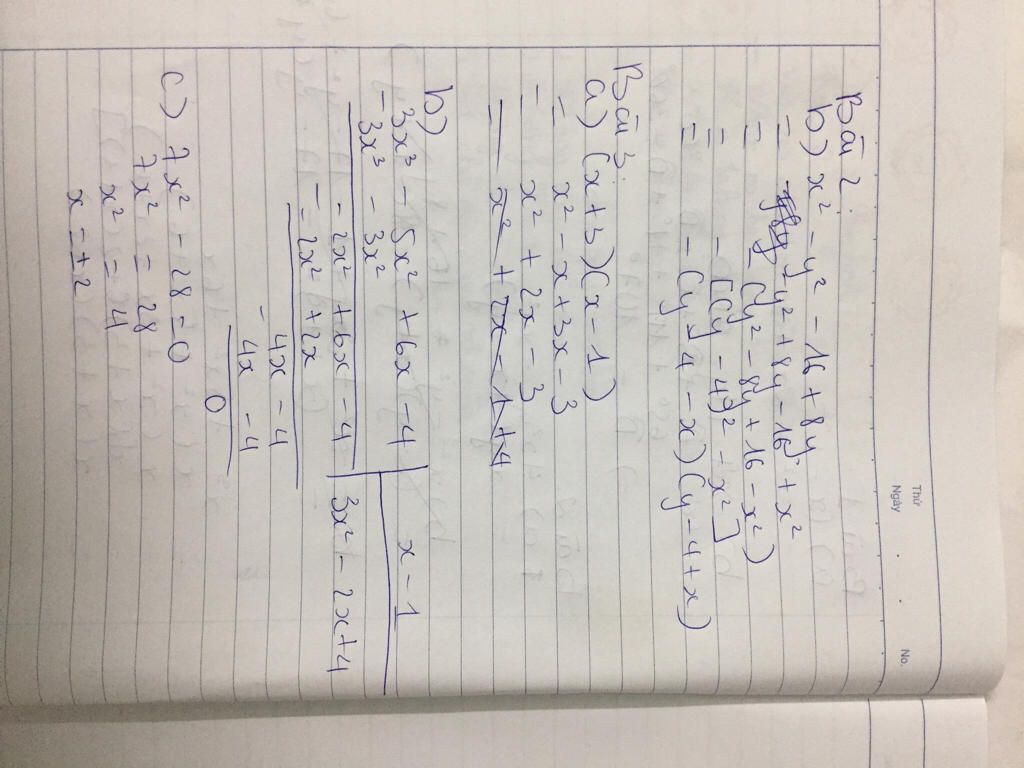 Thứ
Ngày
No.
Bài 2.
b) x² - y² - 16 + 8y
= - y² + 8y - 16 + x²
= - (y² - 8y + 16 - x²)
= - [(y - 4)² - x²]
= - (y - 4 - x)(y - 4 + x)
Bài 3.
a) (x + 3)(x - 1)
= x² - x + 3x - 3
= x² + 2x - 3
b)
3x³ - 5x² + 6x - 4 | x - 1
- 3x³ - 3x²
- 2x² + 6x - 4 | 3x² - 2x + 4
- - 2x² + 2x
4x - 4
- 4x - 4
0
c) 7x² - 28 = 0
7x² = 28
x² = 4
x = ± 2